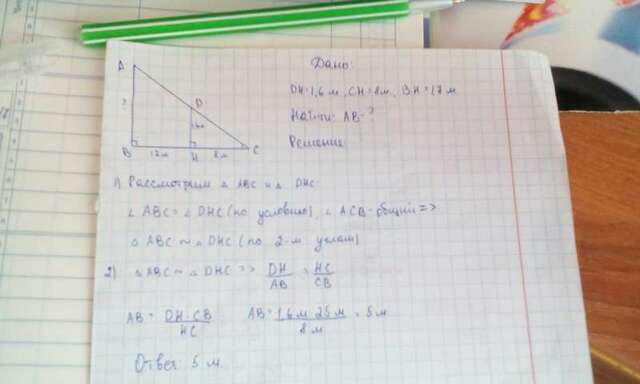 Дано:
DH=1,6 м, CH=8м, BH=17 м
Найти: AB-?
Решение:
A
D
?
1,6м
B
17м
H
8м
C
1) Рассмотрим △ ABC и △ DHC
∠ ABC = ∠ DHC (по условию), ∠ ACB-общий =>
△ ABC ~ △ DHC (по 2-м углам)
2) △ ABC ~ △ DHC => DH/AB = HC/CB
AB = DH·CB/HC AB = 1,6м·25м/8м = 5м
Ответ: 5 м